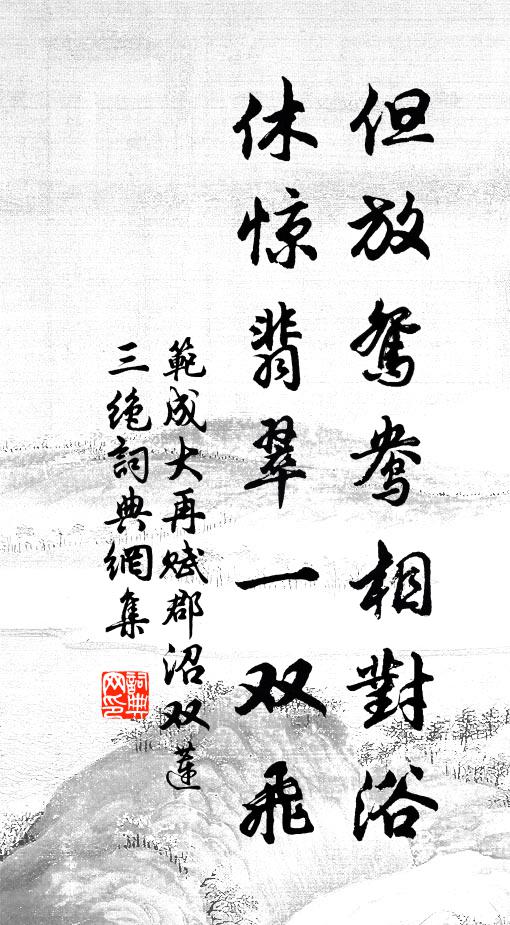 但放鸳鸯相對浴
休惊翡翠一双飛
範成大再赋郡沼双蓮
三絶詞典網集
詞典网印